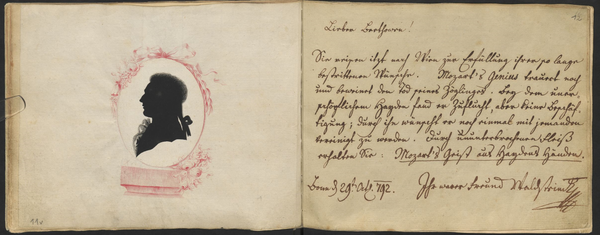 Lieber Beethowen!
Sie reisen itzt nach Wien zur Erfüllung ihrer so lange
bestrittenen Wünsche. Mozart's Genius trauert noch
und beweinet den Tod seines Zöglinges. Bey dem uner-
schöpflichem Hayden fand er Zuflucht, aber keine Beschäf-
tigung; durch ihn wünscht er noch einmal mit jemanden
vereinigt zu werden. Durch ununterbrochenen Fleiß
erhalten Sie: Mozart's Geist aus Haydens Händen.
Bonn d 29t Oct. 792. Ihr warer Freund Waldstein